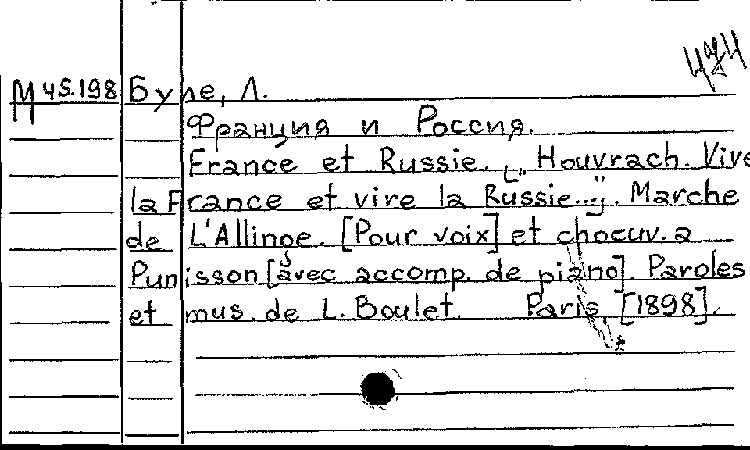 474
М 45.198 Буле, Л.
Франция и Россия.
France et Russie. ["Houvrach. Vive
la France et vive la Russie..."]. Marche
de L'Allinoe. [Pour voix] et choeuv. a
Punisson [avec accomp. de piano]. Paroles
et mus. de L. Boulet. Paris, [1898].